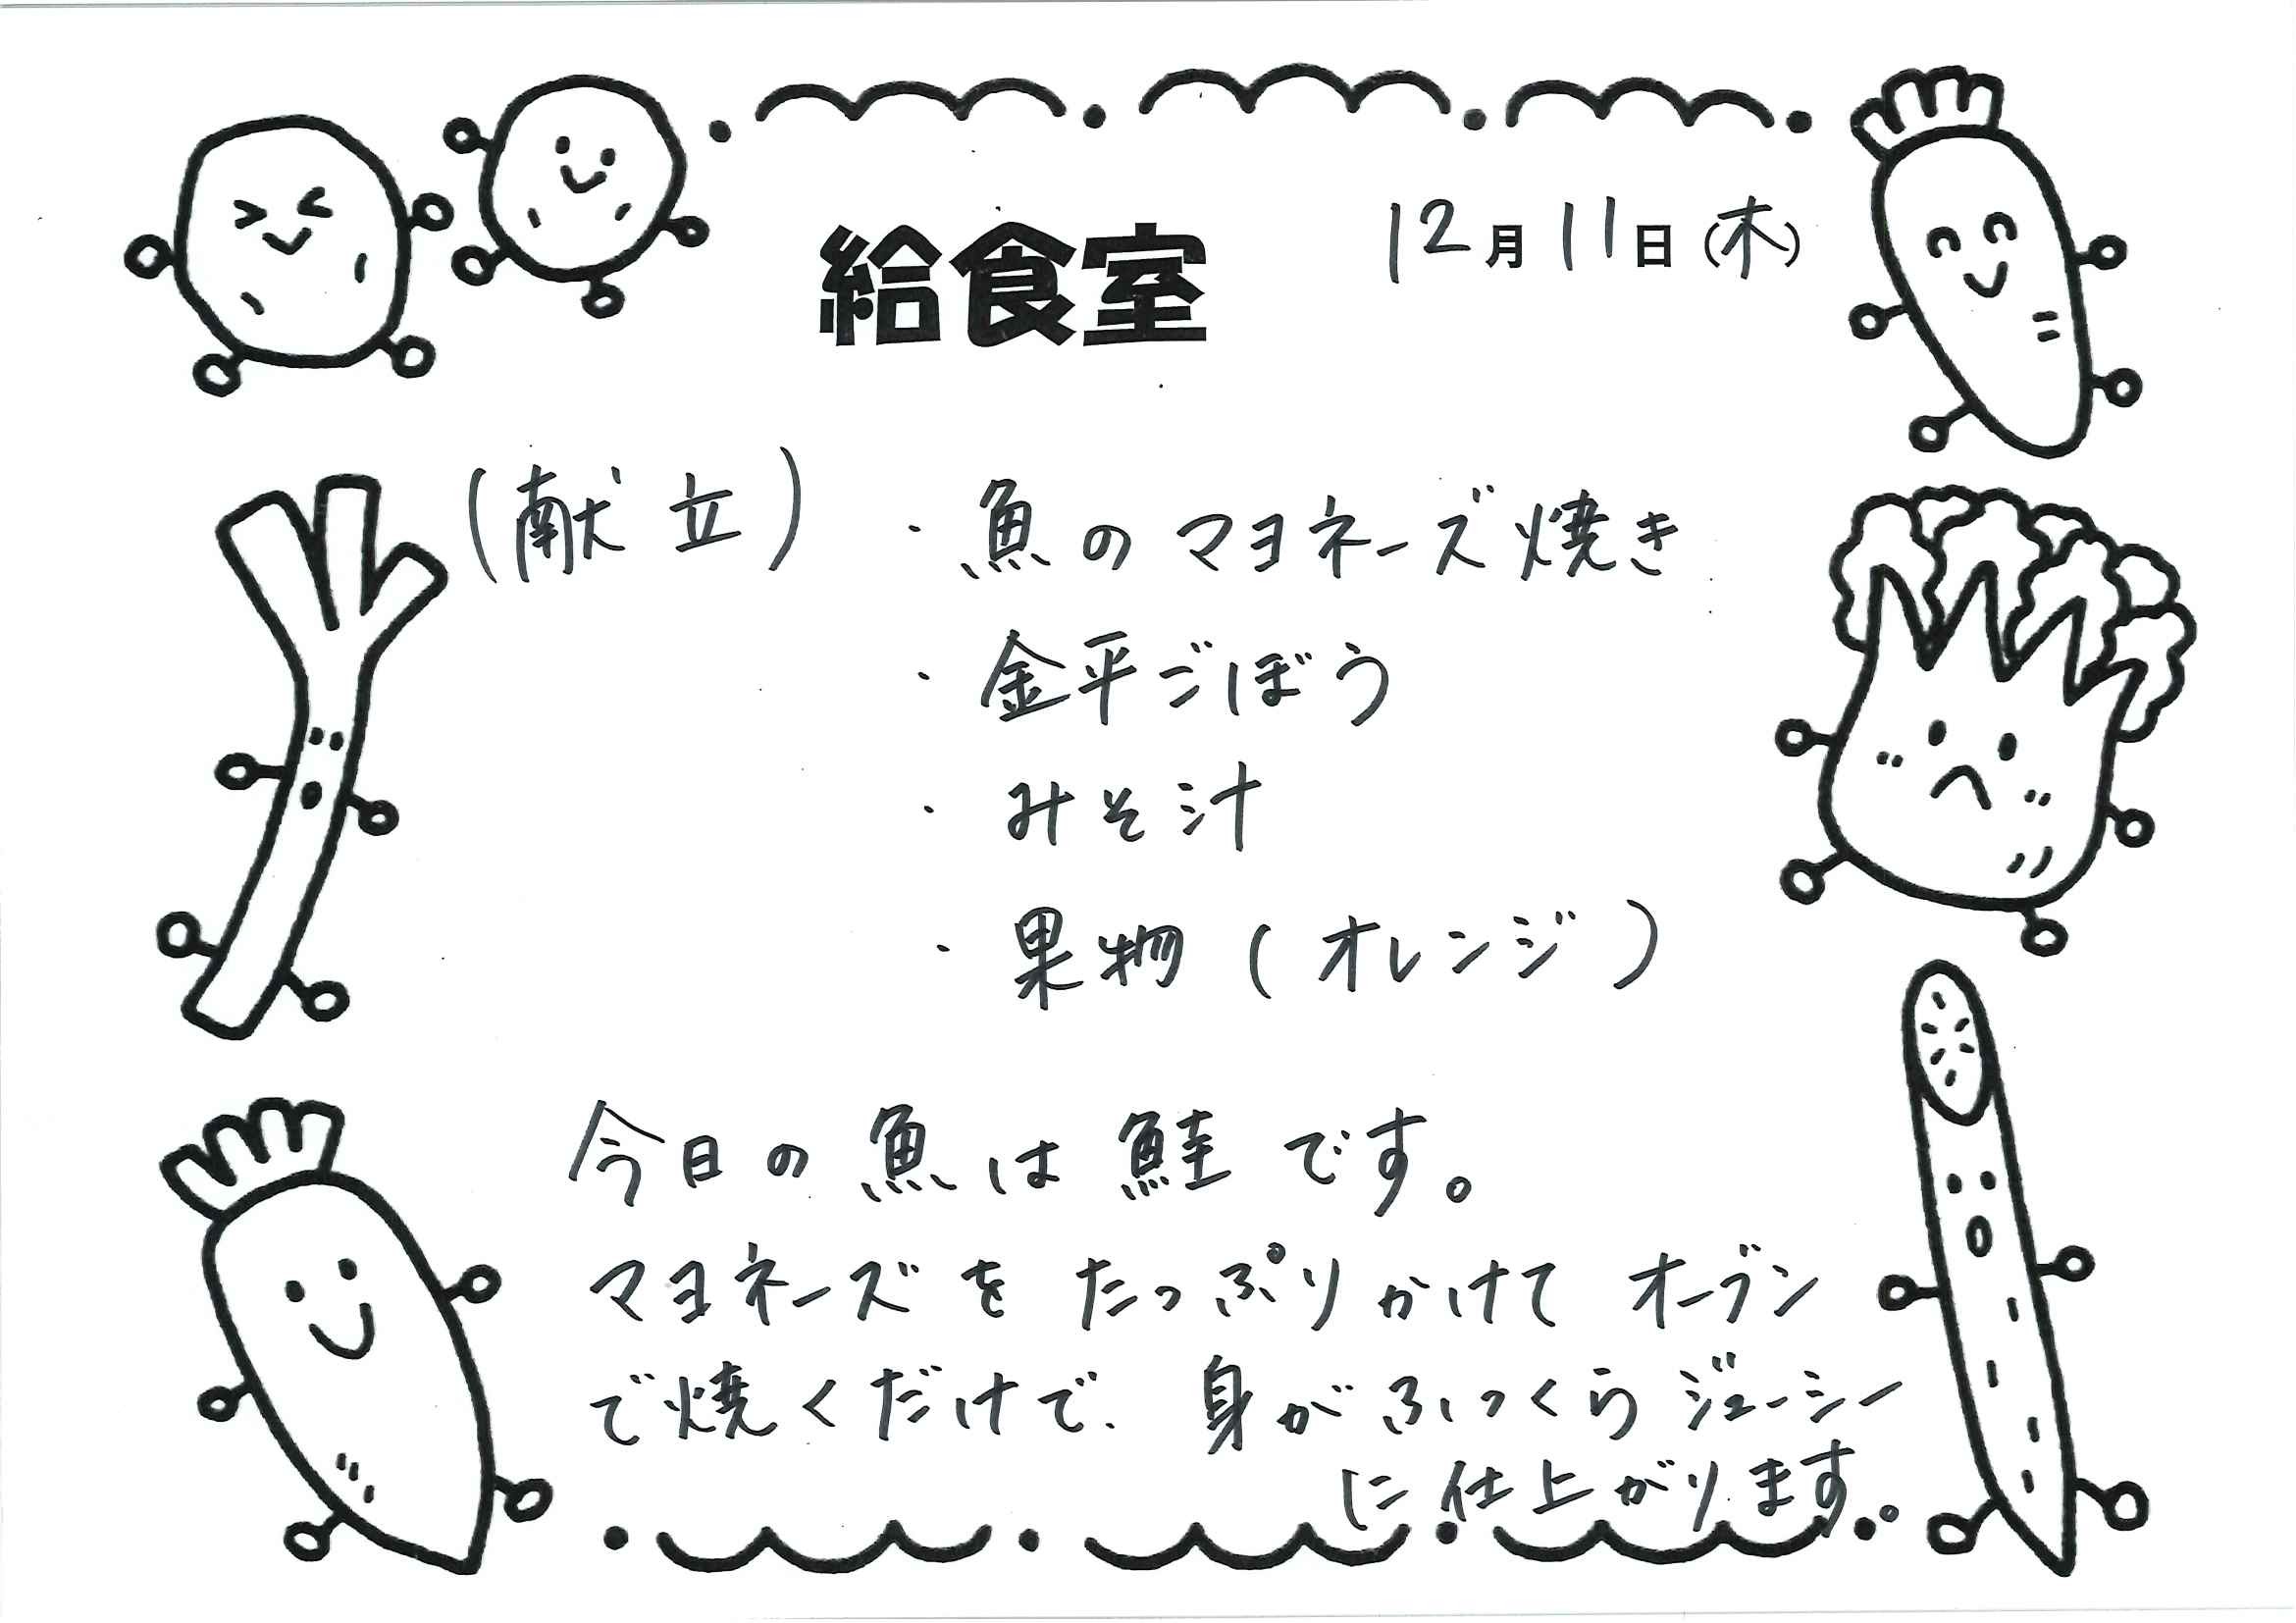 給食室
12月11日(木)
(献立)・魚のマヨネーズ焼き
・金平ごぼう
・みそ汁
・果物(オレンジ)
今日の魚は鮭です。
マヨネーズをたっぷりかけてオーブン
で焼くだけで、身がふっくらジューシー
に仕上がります。